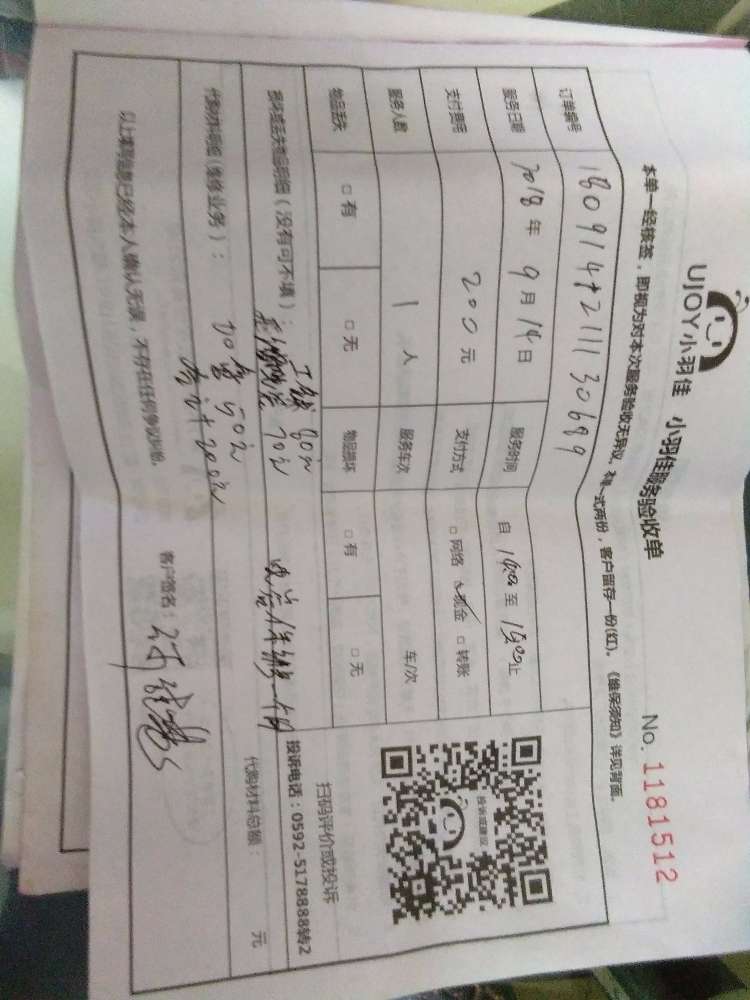 UJOY小羽佳 小羽佳服务验收单
No. 1181512
本单一经核签，即视为对本次服务验收无异议。本单一式两份，客户留存一份(红)。《维保须知》详见背面。
订单编号
服务日期 2018年9月14日 服务时间 自 至 止
支付费用 200元 支付方式 □网络 ☑现金 □转账
服务人数 1人 服务车次 车/次
物品丢失 □有 □无 物品损坏 □有 □无
投诉或建议
扫码评价或投诉
投诉电话：0592-5178888转2
损坏或丢失物品明细（没有可不填）： 工钱80元
70元
代购材料明细（维修业务）： 50元
合计200元
代购材料总额： 元
以上填写信息已经本人确认无误，不存在任何争议纠纷。
客户签名：